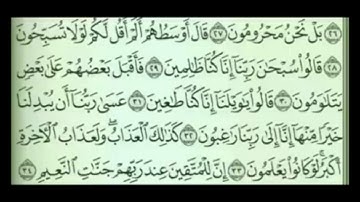 ٢٦ بَلْ نَحْنُ مَحْرُومُونَ ٢٧ قَالَ أَوْسَطُهُمْ أَلَمْ أَقُل لَّكُمْ لَوْلَا تُسَبِّحُونَ
٢٨ قَالُوا۟ سُبْحَٰنَ رَبِّنَآ إِنَّا كُنَّا ظَٰلِمِينَ ٢٩ فَأَقْبَلَ بَعْضُهُمْ عَلَىٰ بَعْضٍ
يَتَلَٰوَمُونَ ٣٠ قَالُوا۟ يَٰوَيْلَنَآ إِنَّا كُنَّا طَٰغِينَ ٣١ عَسَىٰ رَبُّنَآ أَن يُبْدِلَنَا
خَيْرًا مِّنْهَآ إِنَّآ إِلَىٰ رَبِّنَا رَٰغِبُونَ ٣٢ كَذَٰلِكَ ٱلْعَذَابُ ۖ وَلَعَذَابُ ٱلْءَاخِرَةِ
أَكْبَرُ لَوْ كَانُوا۟ يَعْلَمُونَ ٣٣ إِنَّ لِلْمُتَّقِينَ عِندَ رَبِّهِمْ جَنَّٰتِ ٱلنَّعِيمِ ٣٤